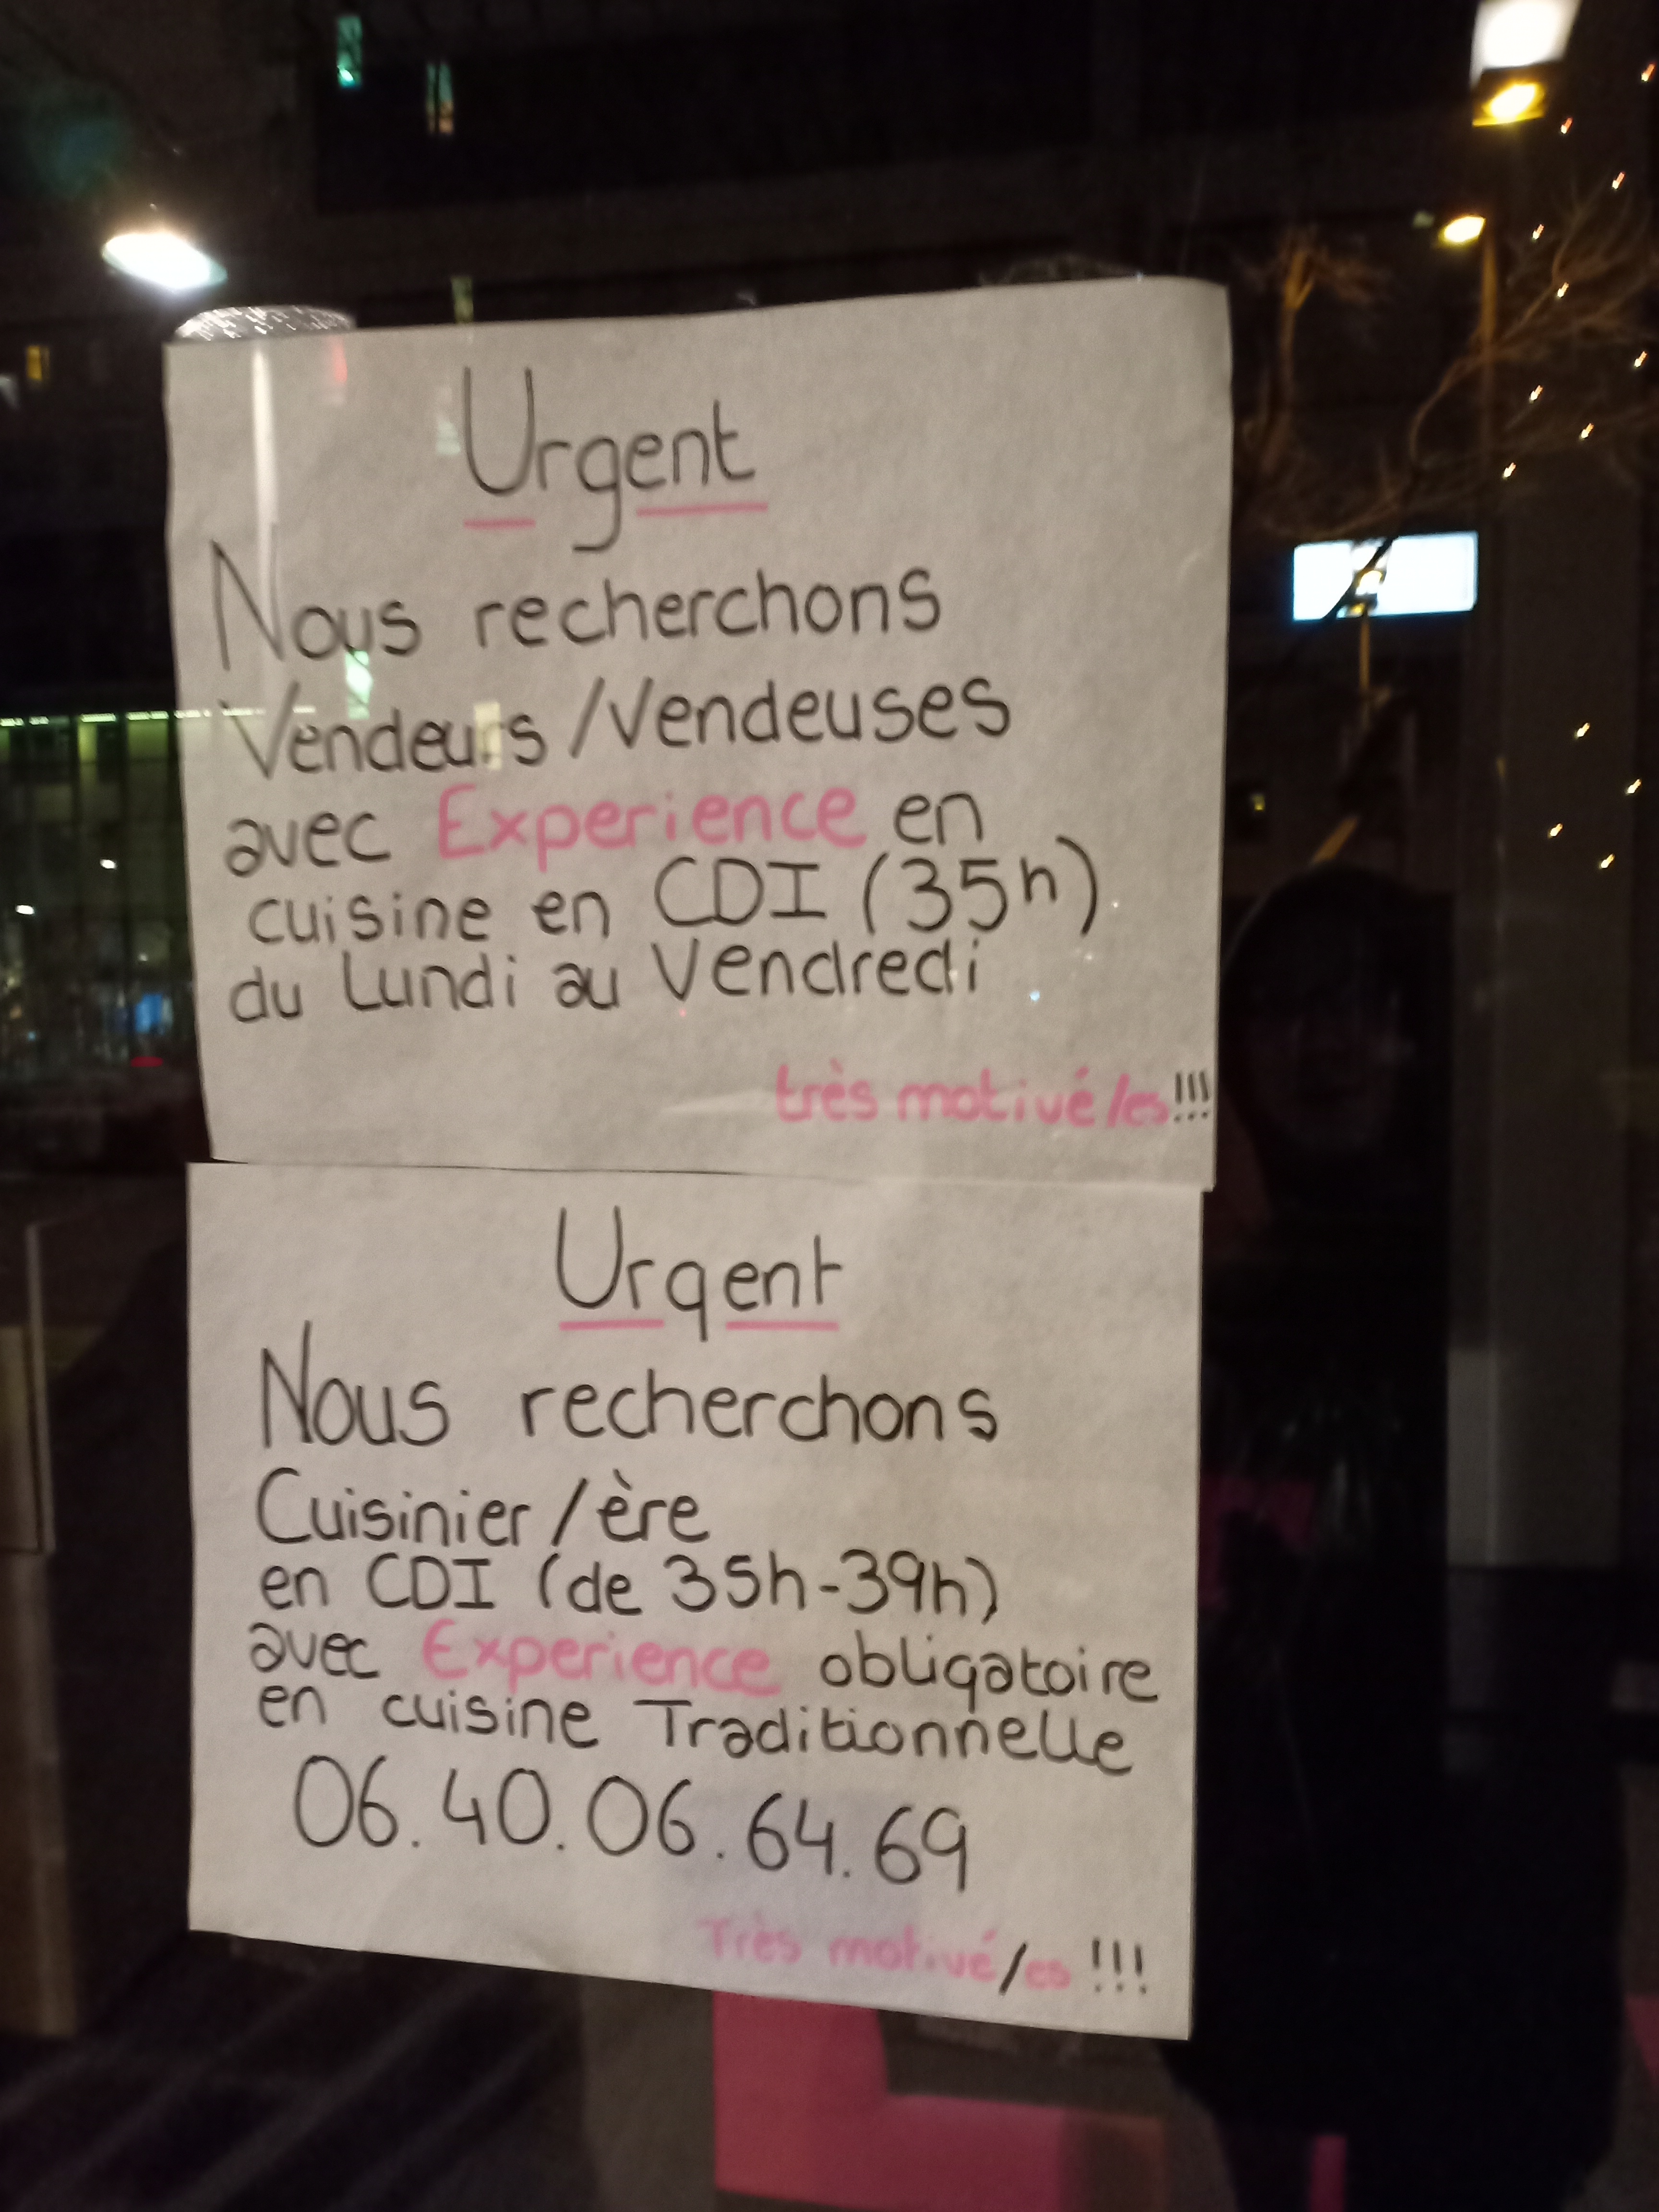 Urgent
Nous recherchons
Vendeurs/Vendeuses
avec Experience en
cuisine en CDI (35h)
du Lundi au Vendredi
très motivé/es!!!
Urgent
Nous recherchons
Cuisinier/ère
en CDI (de 35h-39h)
avec Experience obligatoire
en cuisine Traditionnelle
06.40.06.64.69
Très motivé/es !!!